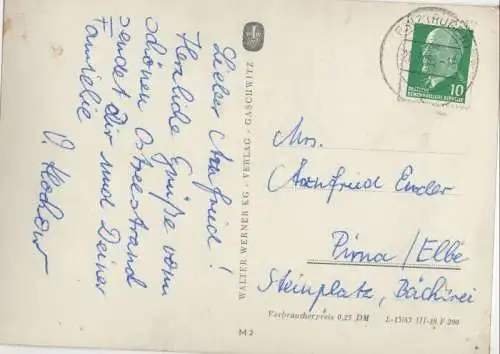 Lieber Arnfried!
Herzliche Grüße vom
schönen Ostseestrand
sendet Dir und Deiner
Familie
WALTER WERNER KG - VERLAG - GASCHWITZ
M 2
DEUTSCHE
DEMOKRATISCHE REPUBLIK
10
Mrs.
Arnfried Ender
Pirna / Elbe
Steinplatz, Bäckerei
Verbraucherpreis 0,25 DM
L-15/65 III-18-F 290